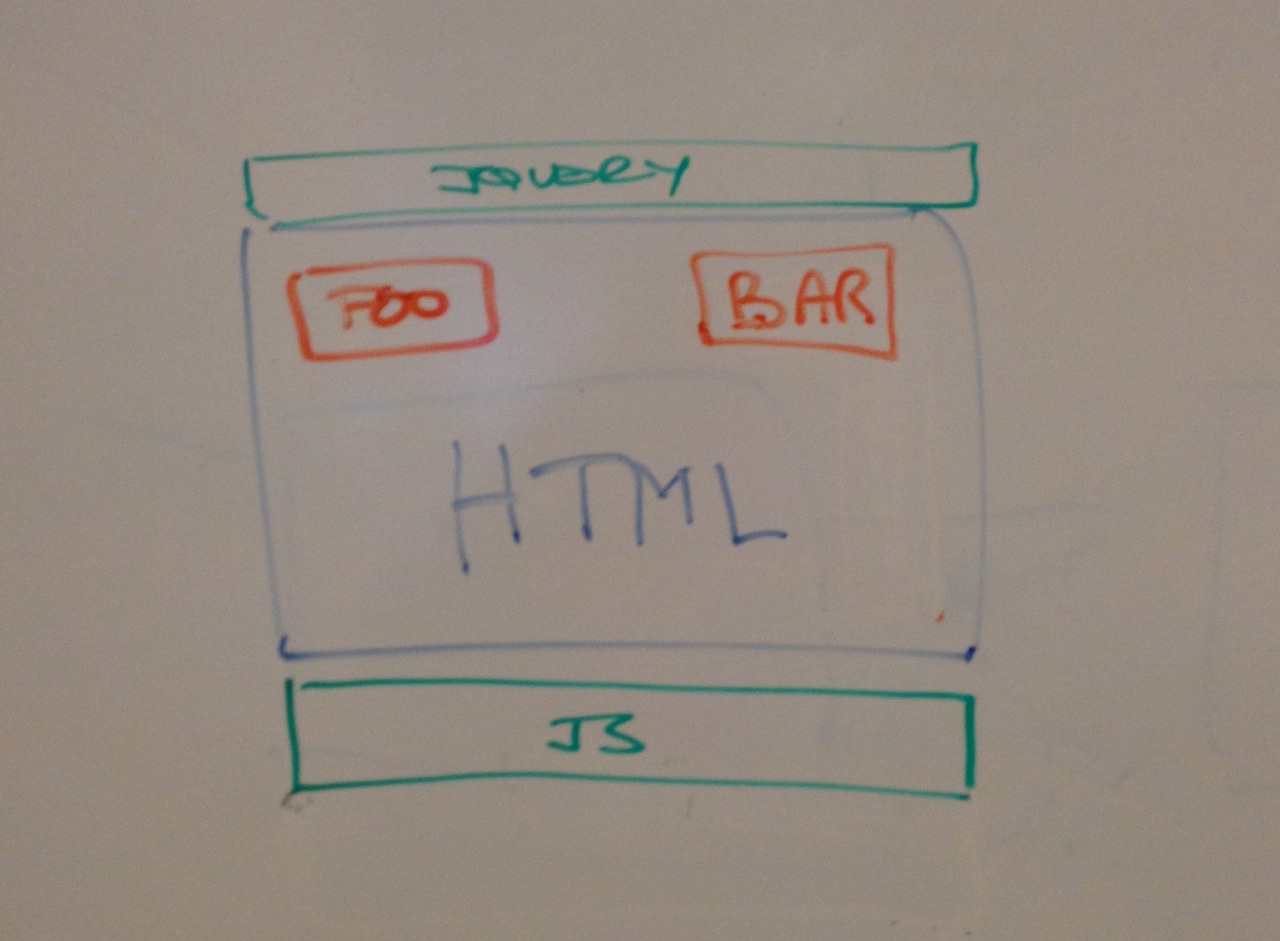 JQUERY
FOO BAR
HTML
JS